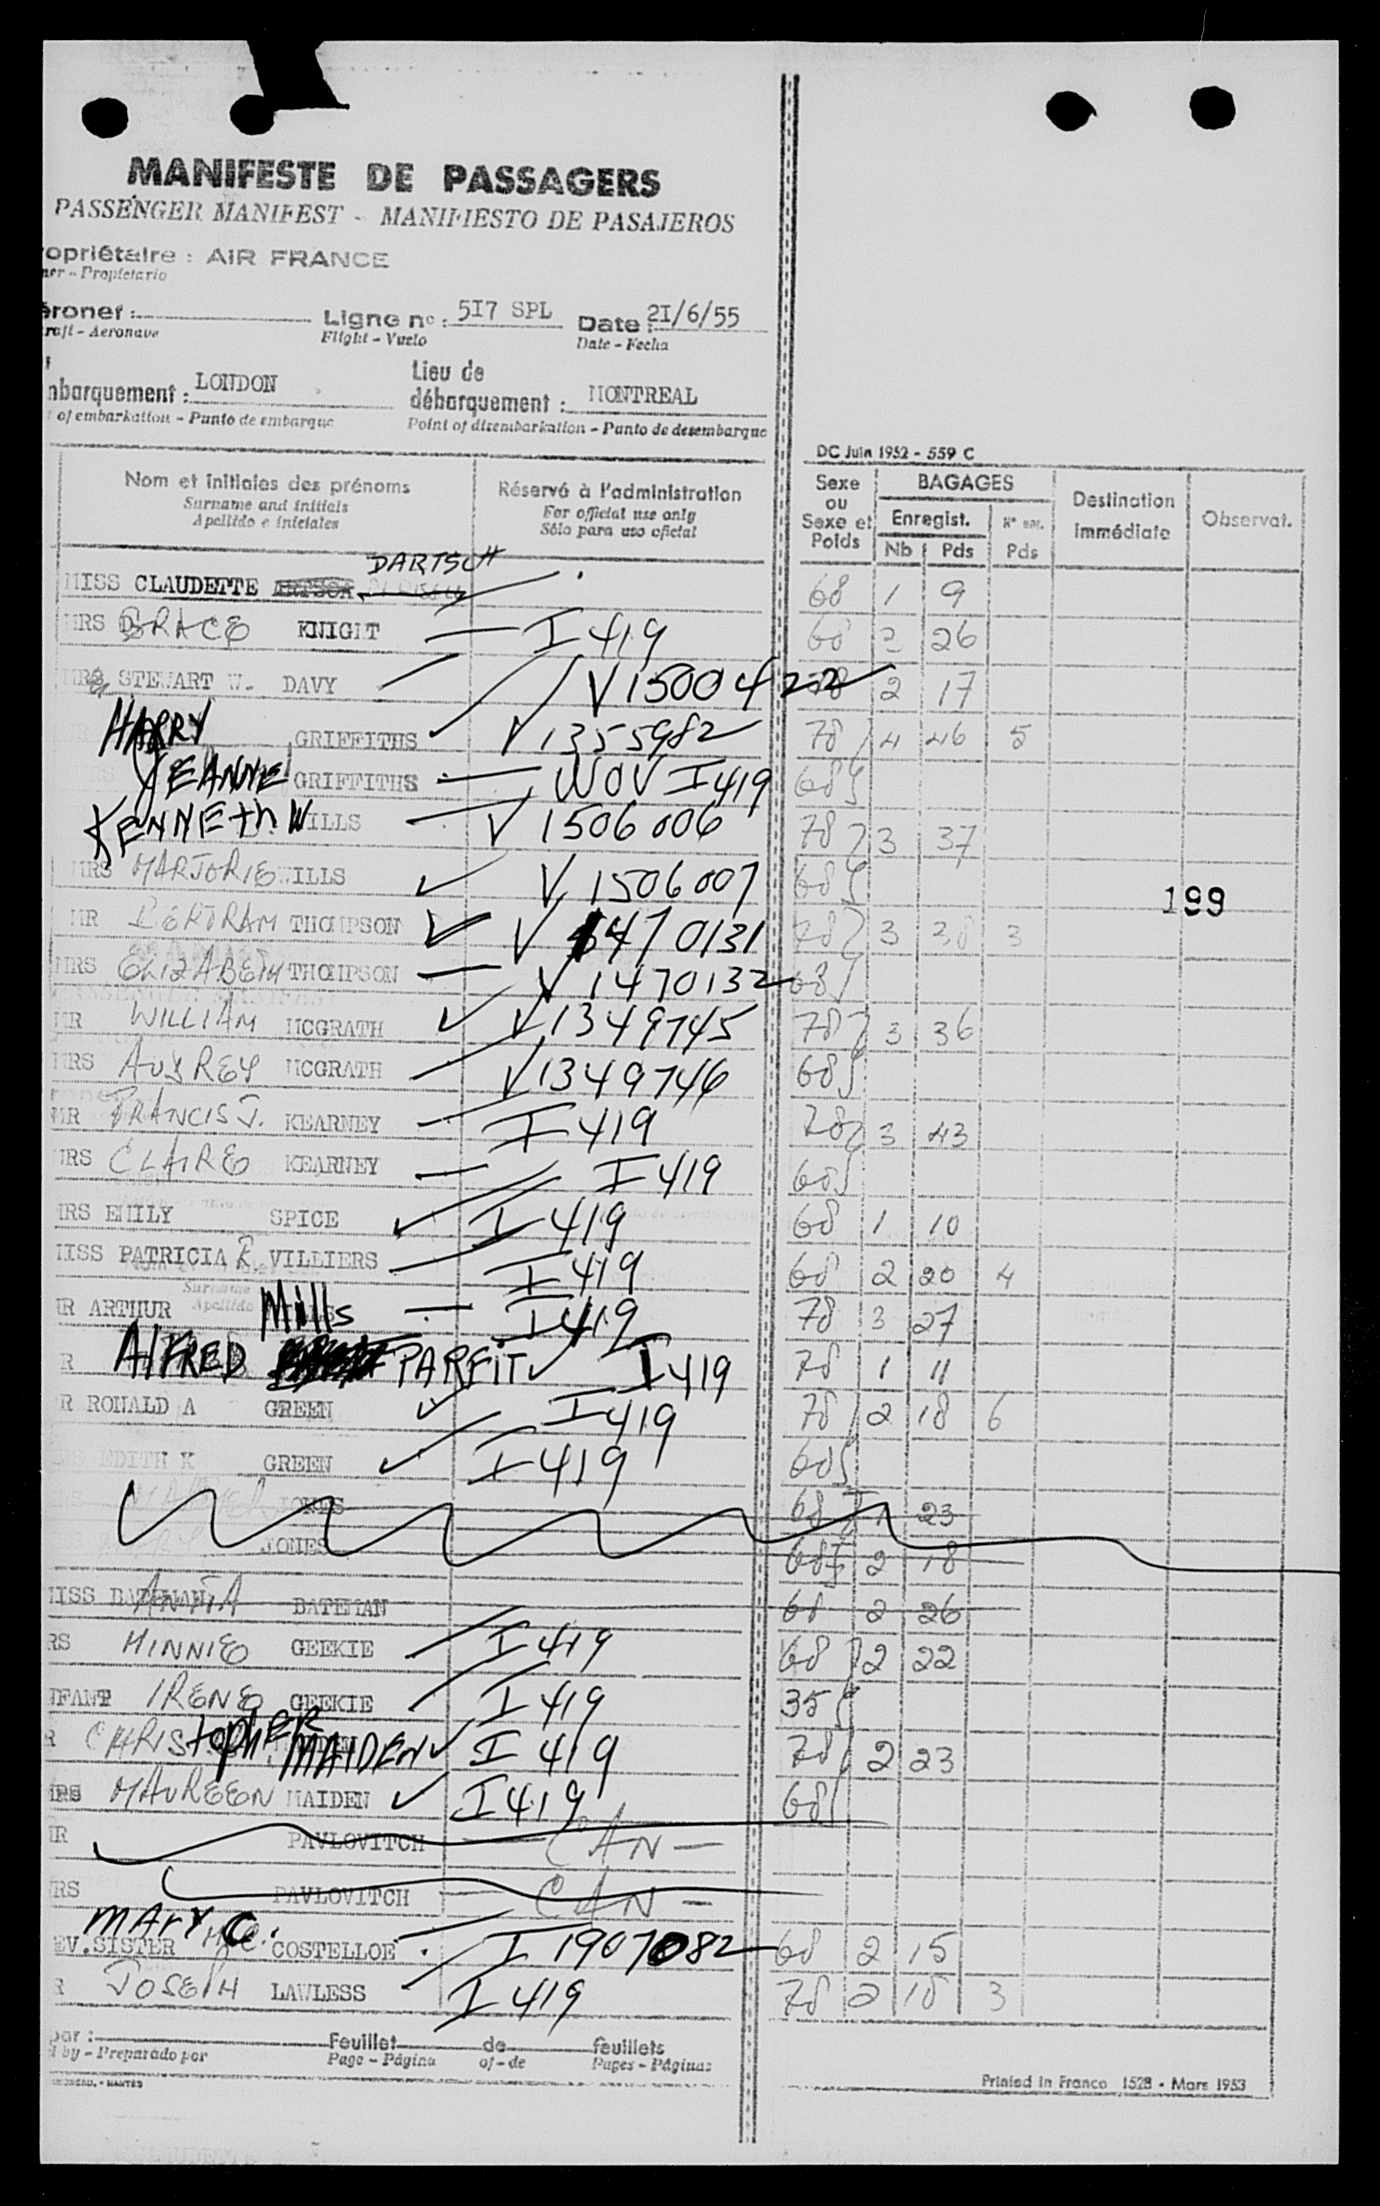 MANIFESTE DE PASSAGERS
PASSENGER MANIFEST - MANIFIESTO DE PASAJEROS
opriétaire : AIR FRANCE
ner - Propietario
éronef : Ligne no : 5I7 SPL Date : 2I/6/55
raft - Aeronave Flight - Vuelo Date - Fecha
Lieu de
nbarquement : LONDON débarquement : MONTREAL
of embarkation - Punto de embarque Point of disembarkation - Punto de desembarque
DC Juin 1952 - 559 C
Nom et initiales des prénoms Réservé à l'administration Sexe ou Sexe et Poids BAGAGES Destination immédiate Observat.
Surname and initials For official use only Enregist.
Apellido e iniciales Sólo para uso oficial Nb Pds Pds
DARTSCH
MISS CLAUDETTE 68 1 9
MRS GRACE KNIGHT I 419 68 2 26
STEWART W. DAVY V 1500422 2 17
HARRY GRIFFITHS V 1355982 78 4 46 5
JEANNE GRIFFITHS WOV I 419 68
KENNETH W WILLS V 1506006 78 3 37
MRS MARJORIE WILLS V 1506007 68
199
MR BERTRAM THOMPSON V 1470131 78 3 38 3
MRS ELIZABETH THOMPSON V 1470132 68
MR WILLIAM MCGRATH V 1349745 78 3 36
MRS AUDREY MCGRATH V 1349746 68
MR FRANCIS J. KEARNEY I 419 78 3 43
MRS CLAIRE KEARNEY I 419 68
MRS EMILY SPICE I 419 68 1 10
MISS PATRICIA R. VILLIERS I 419 68 2 20 4
MR ARTHUR Mills I 419 78 3 27
R ALFRED PARFIT I 419 78 1 11
R RONALD A GREEN I 419 78 2 18 6
EDITH K GREEN I 419 68
JONES 68 23
JONES 68 2 18
MISS ANITA BATEMAN 68 2 26
RS MINNIE GEEKIE I 419 68 2 22
NFANT IRENE GEEKIE I 419 35
R CHRISTOPHER MAIDEN I 419 78 2 23
MRS MAUREEN MAIDEN I 419 68
MR PAVLOVITCH CAN -
RS PAVLOVITCH - CAN -
MARY C.
EV. SISTER COSTELLOE I 1907082 68 2 15
R JOSEPH LAWLESS I 419 78 2 18 3
par : Feuillet de feuillets
d by - Preparado por Page - Página of - de Pages - Páginas
NANTES
Printed in France 1528 - Mars 1953